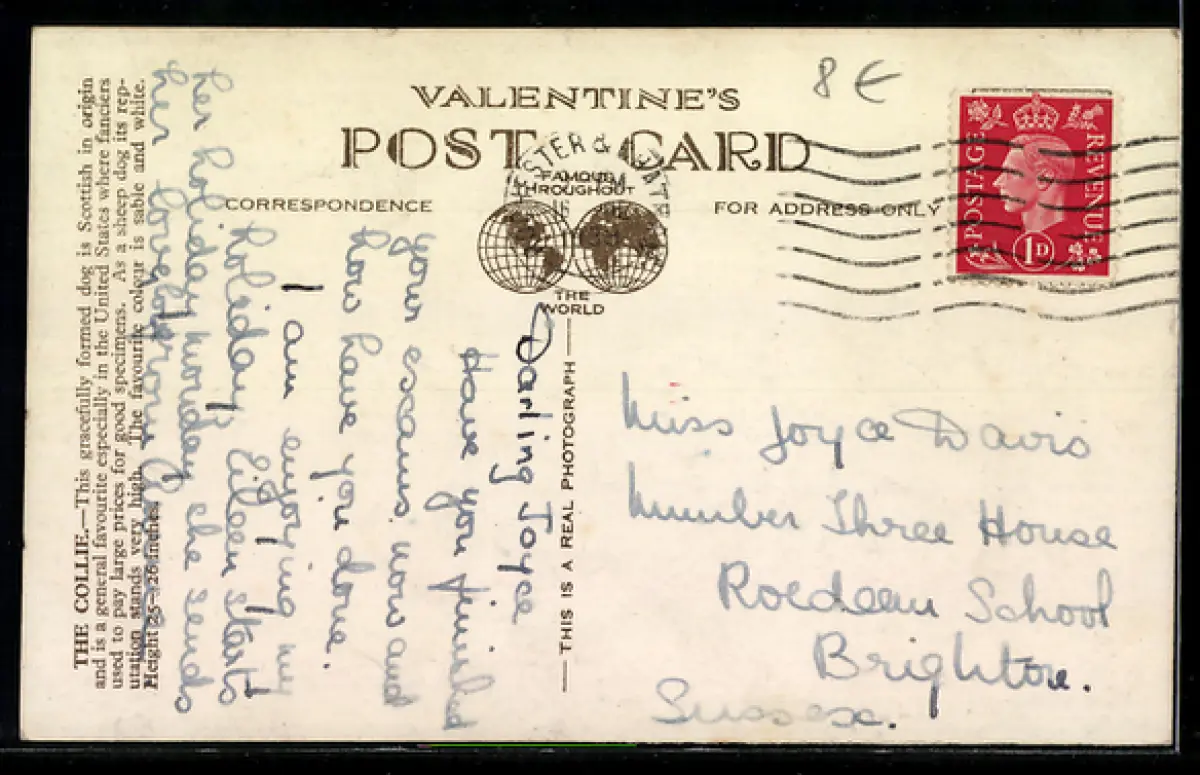 VALENTINE'S
POST CARD
FAMOUS
THROUGHOUT
THE
WORLD
CORRESPONDENCE
FOR ADDRESS ONLY
8 €
POSTAGE
REVENUE
1D
THE COLLIE.—This gracefully formed dog is Scottish in origin
and is a general favourite especially in the United States where fanciers
used to pay large prices for good specimens. As a sheep dog its rep-
utation stands very high. The favourite colour is sable and white.
Height 25-26 inches.
THIS IS A REAL PHOTOGRAPH
Darling Joyce
Have you finished
your exams now and
how have you done.
I am enjoying my
holiday Eileen starts
her holiday monday she sends
her love
Miss Joyce Davis
Number Three House
Roedean School
Brighton.
Sussex.